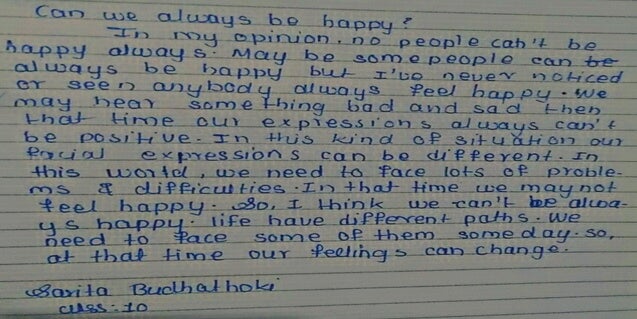 Can we always be happy?
In my opinion. no people can't be
happy always. May be some people can be
always be happy but I've never noticed
or seen anybody always feel happy. We
may hear something bad and sad then
that time our expressions always can't
be positive. In this kind of situation our
facial expressions can be different. In
this world, we need to face lots of proble-
ms & difficulties. In that time we may not
feel happy. So, I think we can't be alwa-
ys happy. life have different paths. We
need to face some of them some day. so,
at that time our feelings can change.
Sarita Budhathoki
class: 10